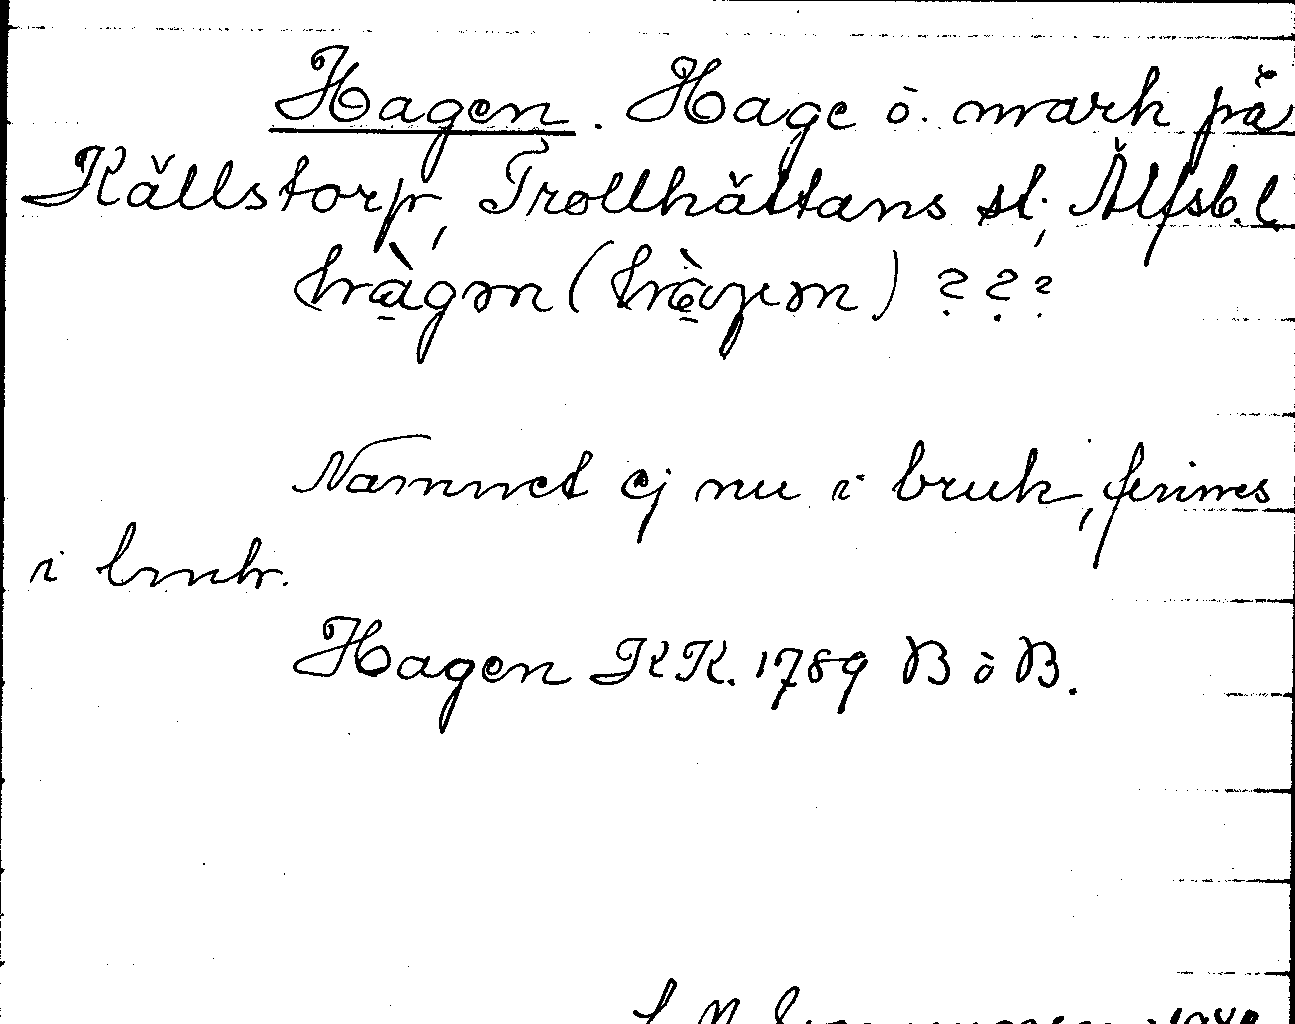 Hagen. Hage o. mark på
Källstorp, Trollhättans st., Älfsb. l.
hàgən (hàɣen) ? ? ?
Namnet ej nu i bruk, finnes
i bruk.
Hagen KK. 1789 B o B.